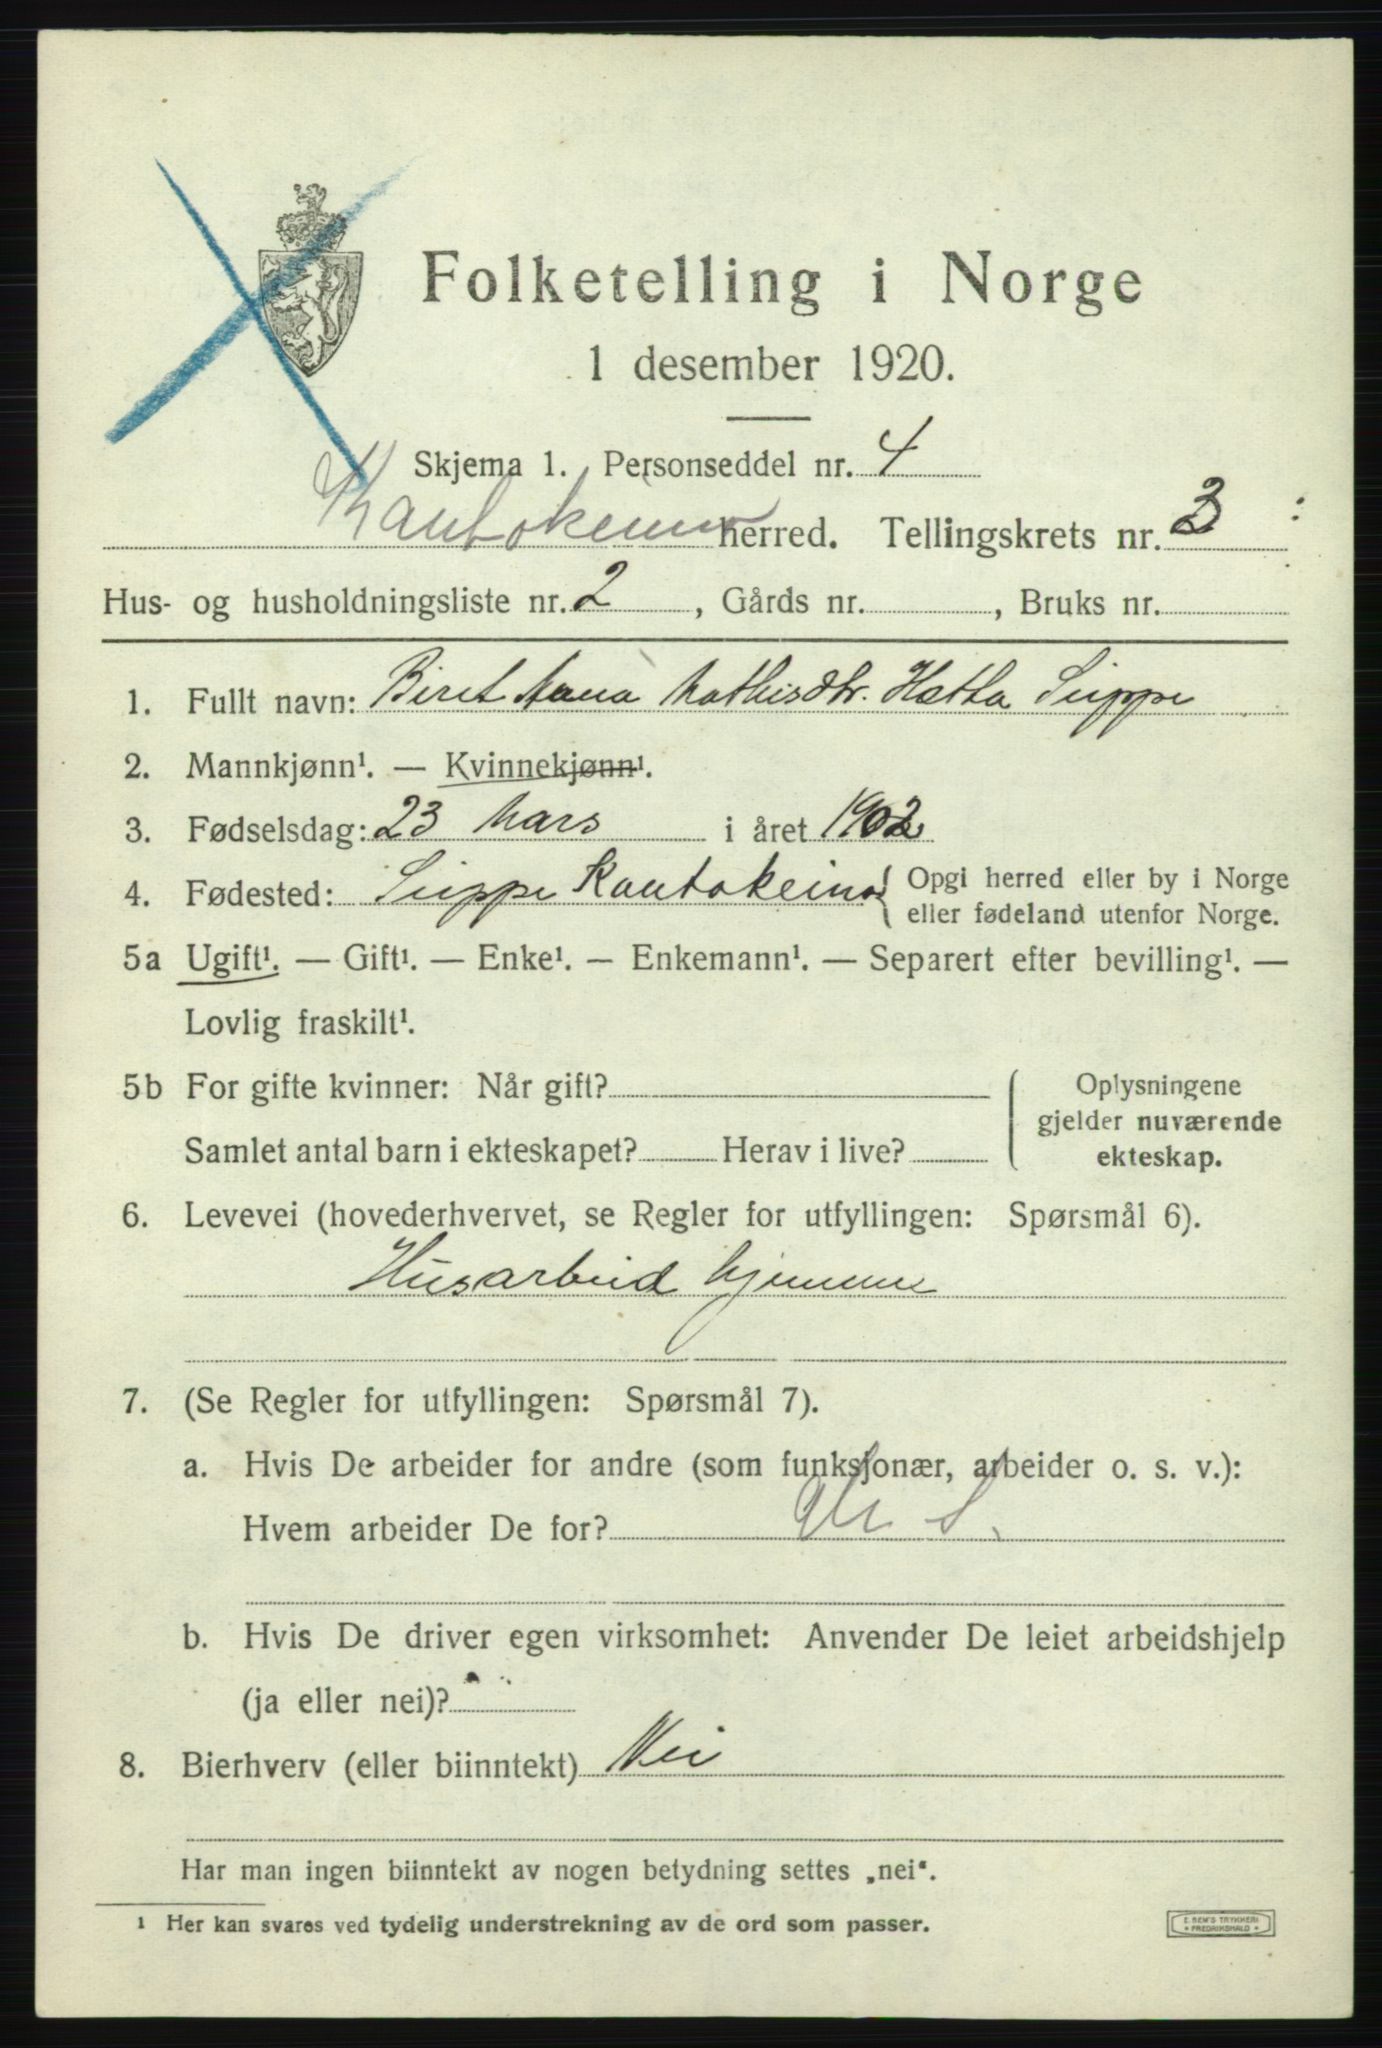 Folketelling i Norge
1 desember 1920.
Skjema 1. Personseddel nr. 4
Kautokeino herred. Tellingskrets nr. 3
Hus- og husholdningsliste nr. 2, Gårds nr. , Bruks nr.
1. Fullt navn: Biret Anna Mathisdtr. Hætta Siippe
2. Mannkjønn¹. — Kvinnekjønn¹.
3. Fødselsdag: 23 Mars i året 1902
4. Fødested: Siippe Kautokeino { Opgi herred eller by i Norge
eller fødeland utenfor Norge.
5a Ugift¹. — Gift¹. — Enke¹. — Enkemann¹. — Separert efter bevilling¹. —
Lovlig fraskilt¹.
5b For gifte kvinner: Når gift? { Oplysningene
gjelder nuværende
Samlet antal barn i ekteskapet? Herav i live?
ekteskap.
6. Levevei (hovederhvervet, se Regler for utfyllingen: Spørsmål 6).
Husarbeid hjemme
7. (Se Regler for utfyllingen: Spørsmål 7).
a. Hvis De arbeider for andre (som funksjonær, arbeider o. s. v.):
Hvem arbeider De for?
b. Hvis De driver egen virksomhet: Anvender De leiet arbeidshjelp
(ja eller nei)?
8. Bierhverv (eller biinntekt) Nei
Har man ingen biinntekt av nogen betydning settes „nei“.
1 Her kan svares ved tydelig understrekning av de ord som passer.
E. SEM'S TRYKKERI
FREDRIKSHALD